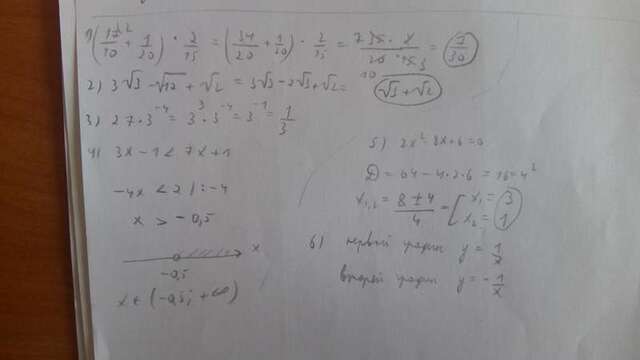 1) (17²/10 + 1/20) · 2/15 = (34/20 + 1/20) · 2/15 = 7 35 · 2 / 20 · 15 3 = 7/30
10
2) 3√3 - √12 + √2 = 3√3 - 2√3 + √2 = √3 + √2
3) 27 · 3⁻⁴ = 3³ · 3⁻⁴ = 3⁻¹ = 1/3
4) 3x - 1 < 7x + 1
-4x < 2 | : -4
x > -0,5
x
-0,5
x ∈ (-0,5; +∞)
5) 2x² - 8x + 6 = 0
D = 64 - 4 · 2 · 6 = 16 = 4²
x₁,₂ = 8 ± 4 / 4 = [ x₁ = 3
x₂ = 1
6) первый график y = 1/x
второй график y = - 1/x